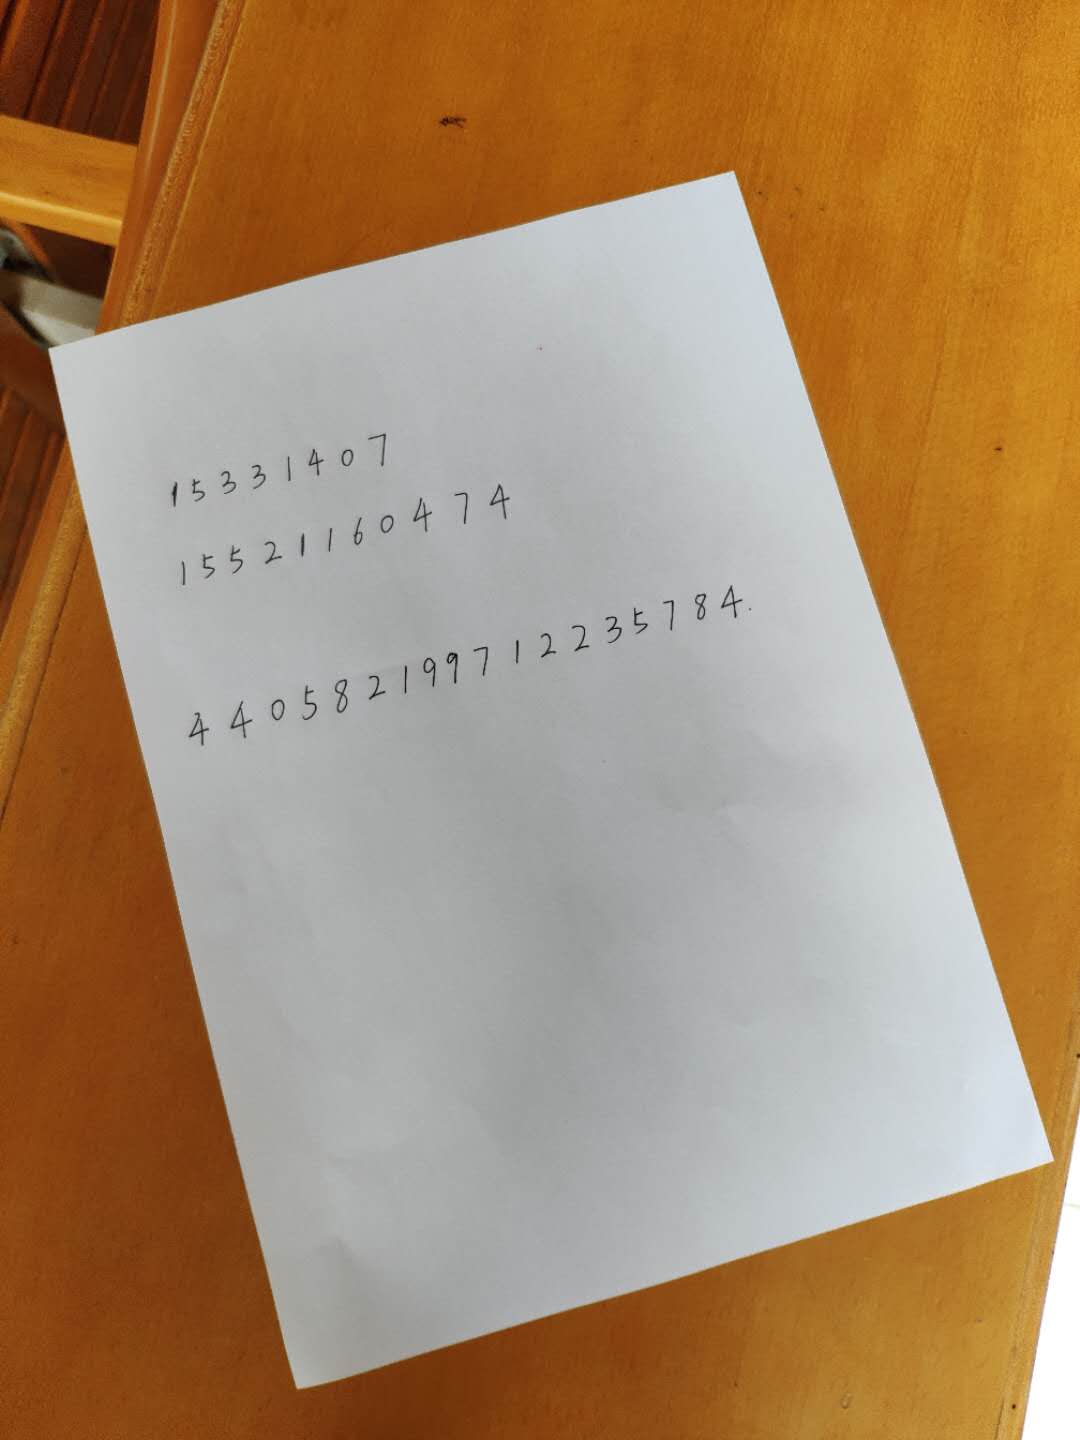 15331407
15521160474
440582199712235784.